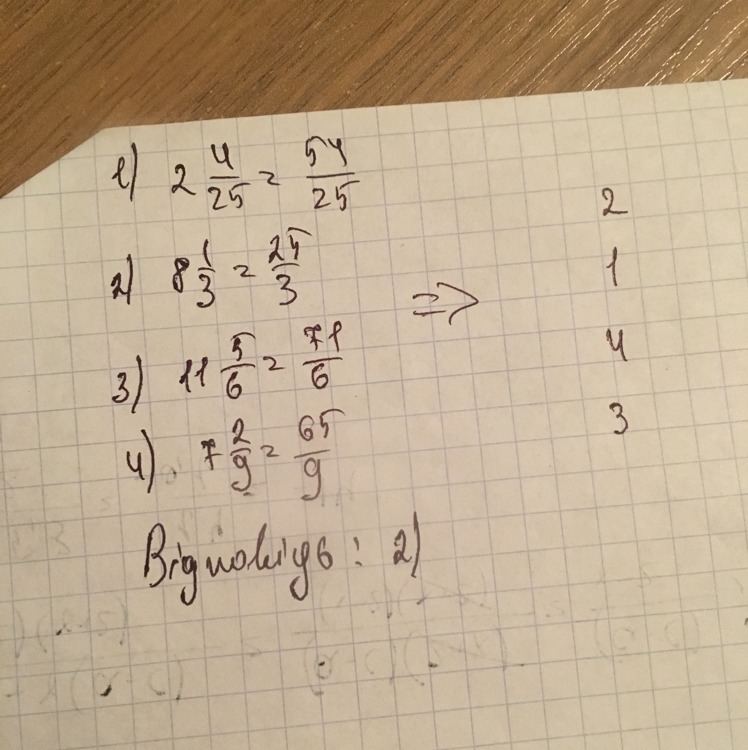 1) 2 4/25 = 54/25
2
2) 8 1/3 = 25/3
1
⇒
3) 11 5/6 = 71/6
4
4) 7 2/9 = 65/9
3
Відповідь: 2)